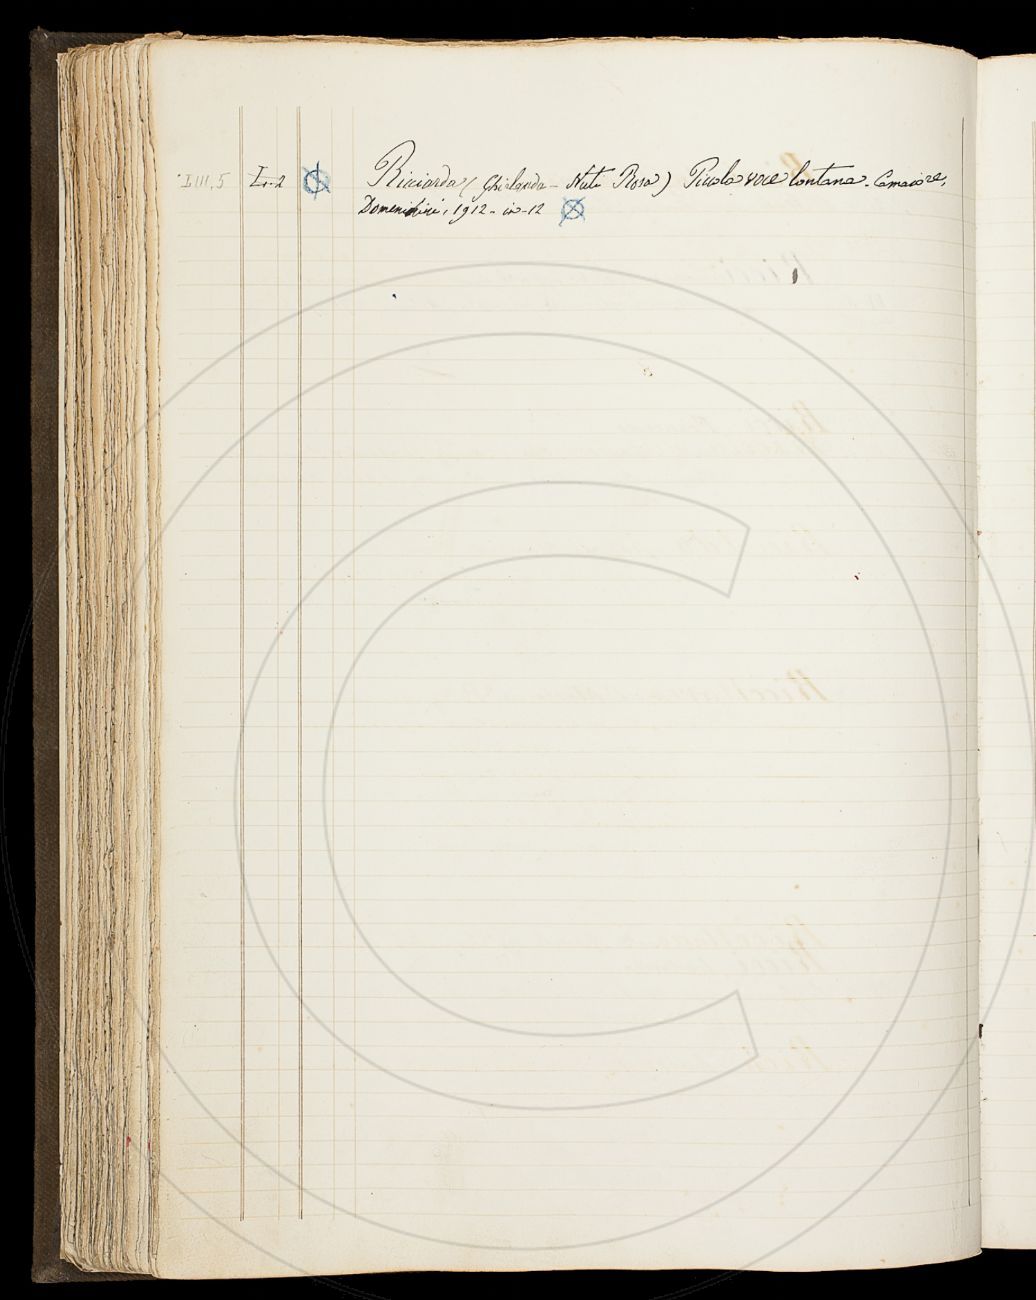 LIII, 5 L. 2 Ricciarda (Ghirlanda - Nuti Rosa) Piccola voce lontana. Camaiore,
Domenicini, 1912. in-12